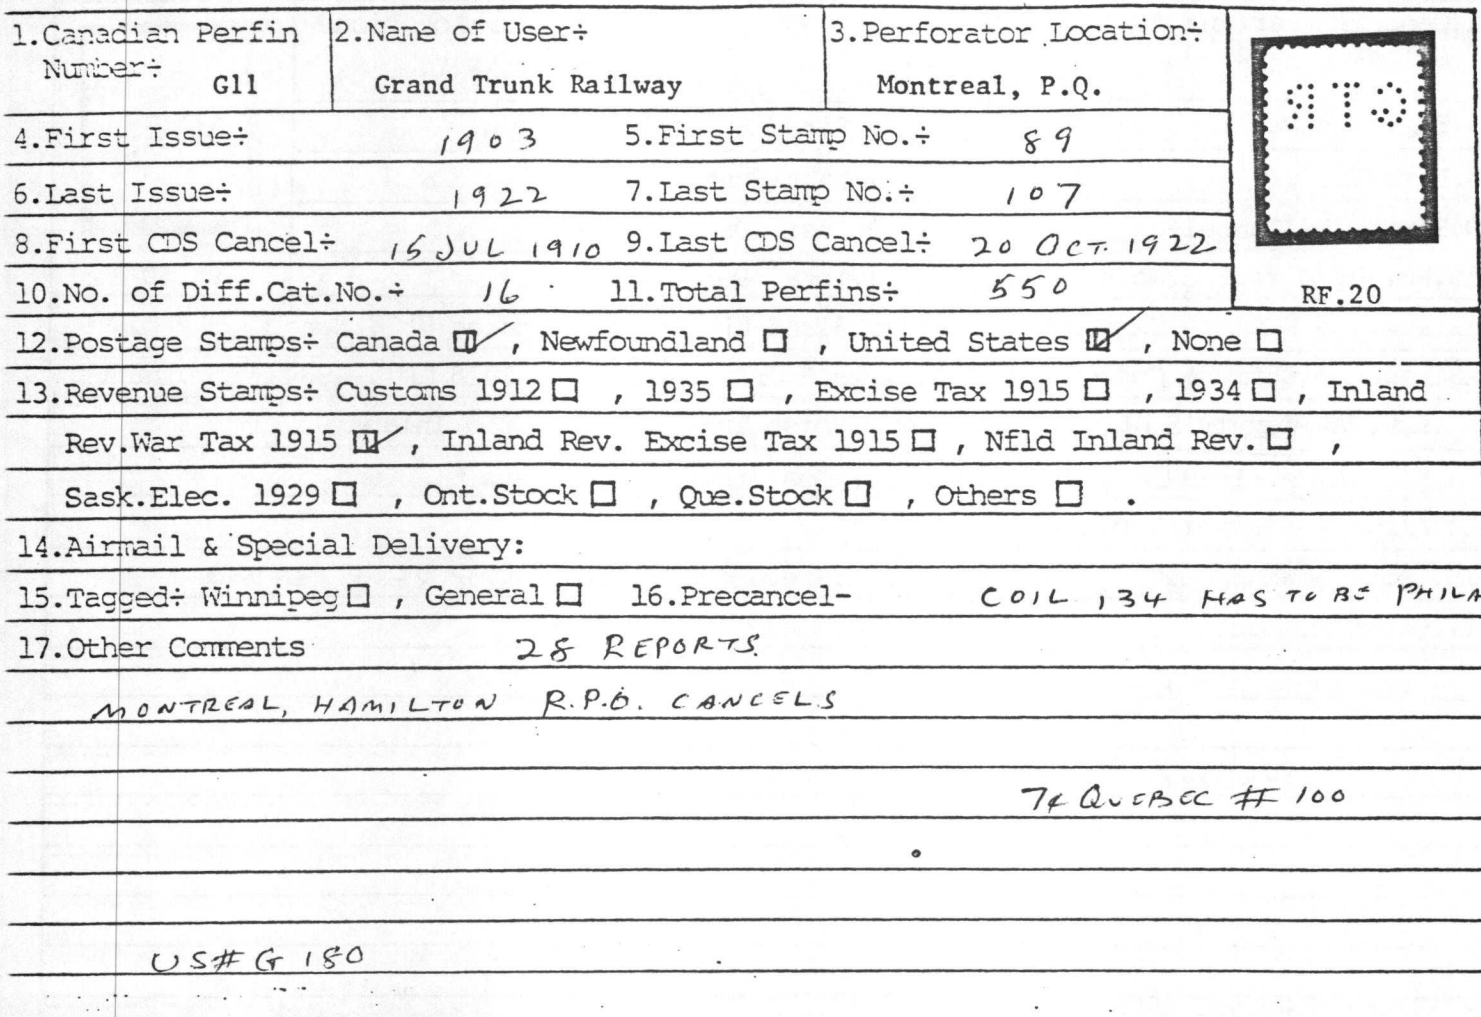 1.Canadian Perfin Number÷ G11
2.Name of User÷ Grand Trunk Railway
3.Perforator Location÷ Montreal, P.Q.
GTR
4.First Issue÷ 1903 5.First Stamp No.÷ 89
6.Last Issue÷ 1922 7.Last Stamp No.÷ 107
8.First CDS Cancel÷ 15 JUL 1910 9.Last CDS Cancel÷ 20 OCT. 1922
10.No. of Diff.Cat.No.÷ 16 11.Total Perfins÷ 550
RF.20
12.Postage Stamps÷ Canada ☑ , Newfoundland ☐ , United States ☑ , None ☐
13.Revenue Stamps÷ Customs 1912 ☐ , 1935 ☐ , Excise Tax 1915 ☐ , 1934 ☐ , Inland
Rev.War Tax 1915 ☑ , Inland Rev. Excise Tax 1915 ☐ , Nfld Inland Rev. ☐ ,
Sask.Elec. 1929 ☐ , Ont.Stock ☐ , Que.Stock ☐ , Others ☐ .
14.Airmail & Special Delivery:
15.Tagged÷ Winnipeg ☐ , General ☐ 16.Precancel- COIL 134 HAS TO BE PHILA
17.Other Comments 28 REPORTS.
MONTREAL, HAMILTON R.P.O. CANCELS
7¢ QUEBEC # 100
US# G 180